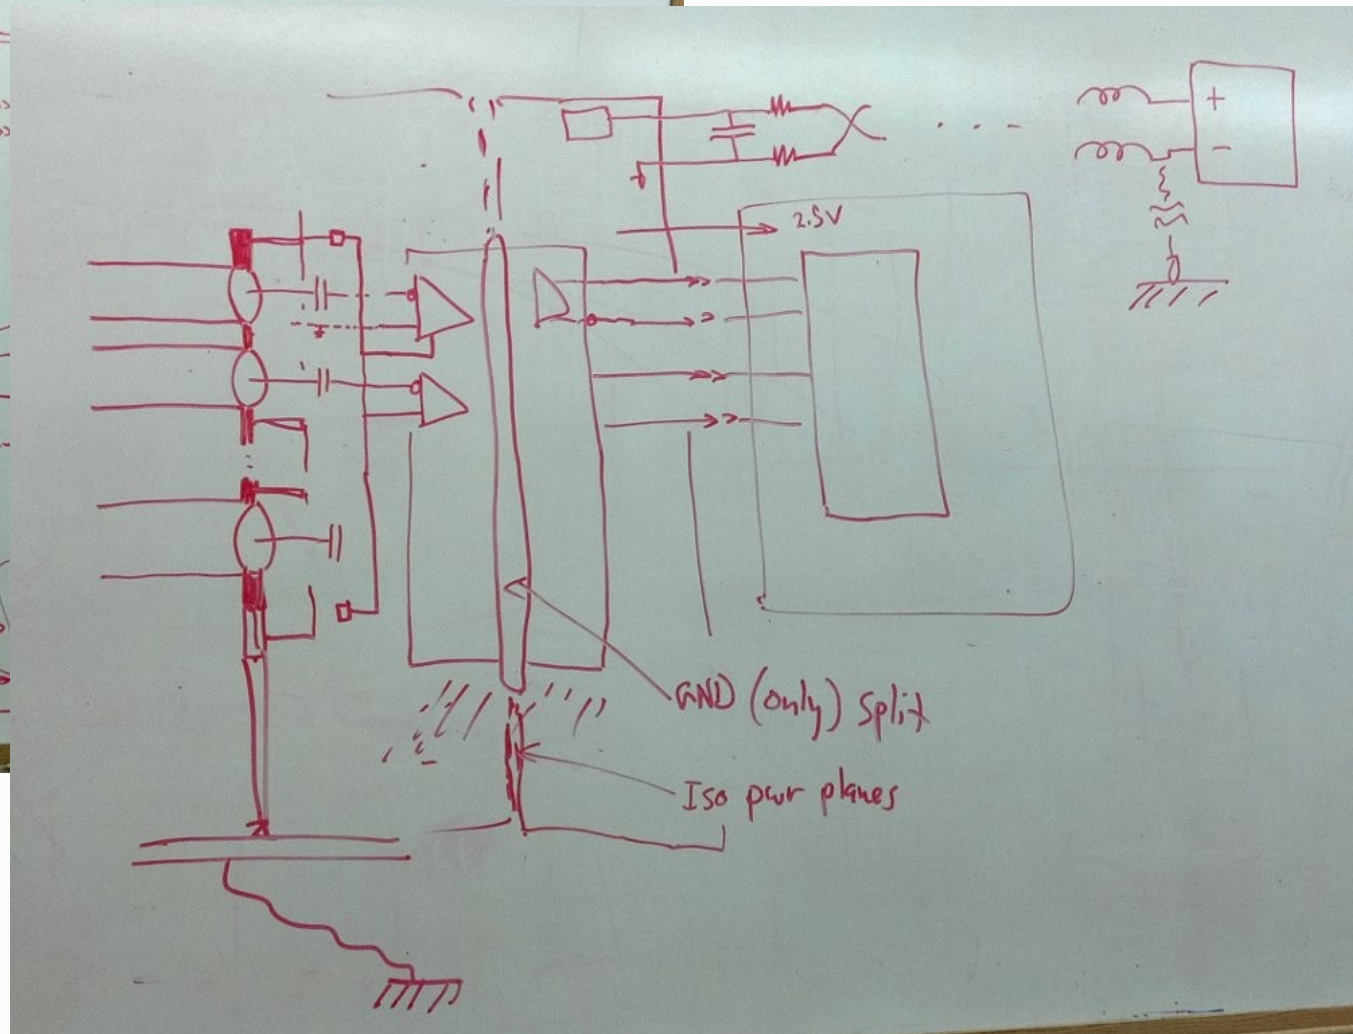 +
-
2.5V
GND (only) Split
Iso pwr planes